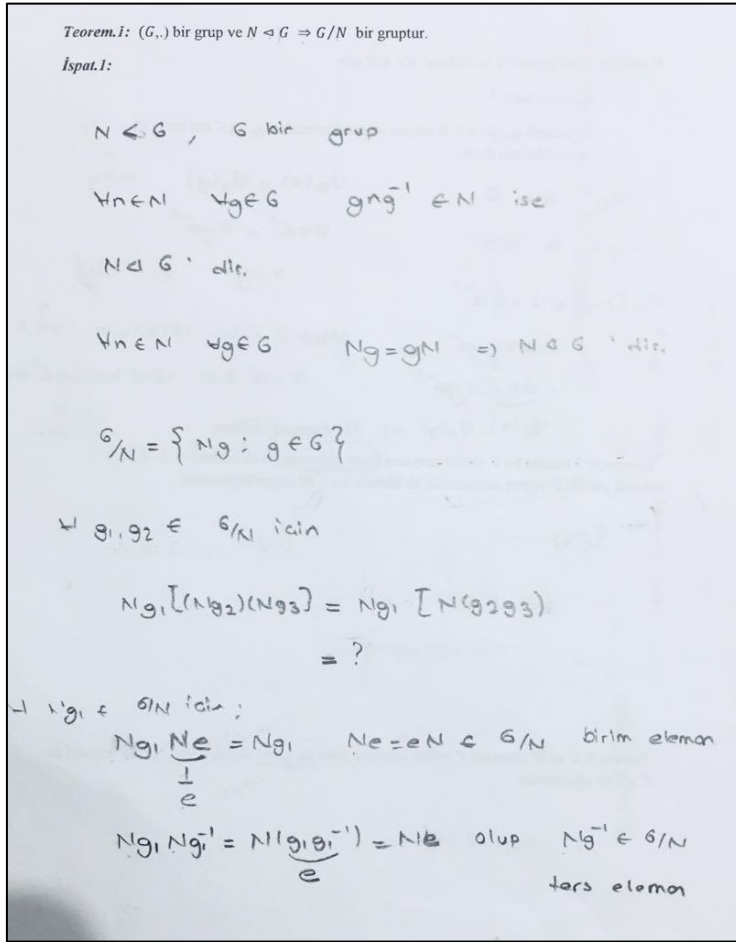 Teorem.1: (G,.) bir grup ve N ⊲ G ⇒ G/N bir gruptur.
İspat.1:
N ≤ G, G bir grup
∀n∈N ∀g∈G gng⁻¹ ∈ N ise
N ⊲ G ' dir.
∀n∈N ∀g∈G Ng = gN => N ⊲ G ' dir.
G/N = { Ng : g ∈ G }
∀ g₁, g₂ ∈ G/N icin
Ng₁[(Ng₂)(Ng₃] = Ng₁ [N(g₂g₃)
= ?
∀ Ng₁ ∈ G/N icin;
Ng₁ Ne = Ng₁ Ne = eN ∈ G/N birim eleman
e
Ng₁ Ng₁⁻¹ = N(g₁g₁⁻¹) = Ne olup Ng⁻¹ ∈ G/N
e
ters eleman